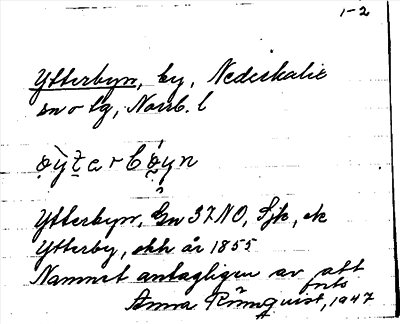 1-2
Ytterbyn, by, Nederkalix
sn o tg, Norrb. l
Ytterbyn, Gn 37NO, Sjk, ek
Ytterby, ekk år 1855
Namnet antagligen av att
forts
Anna Rönnquist, 1947